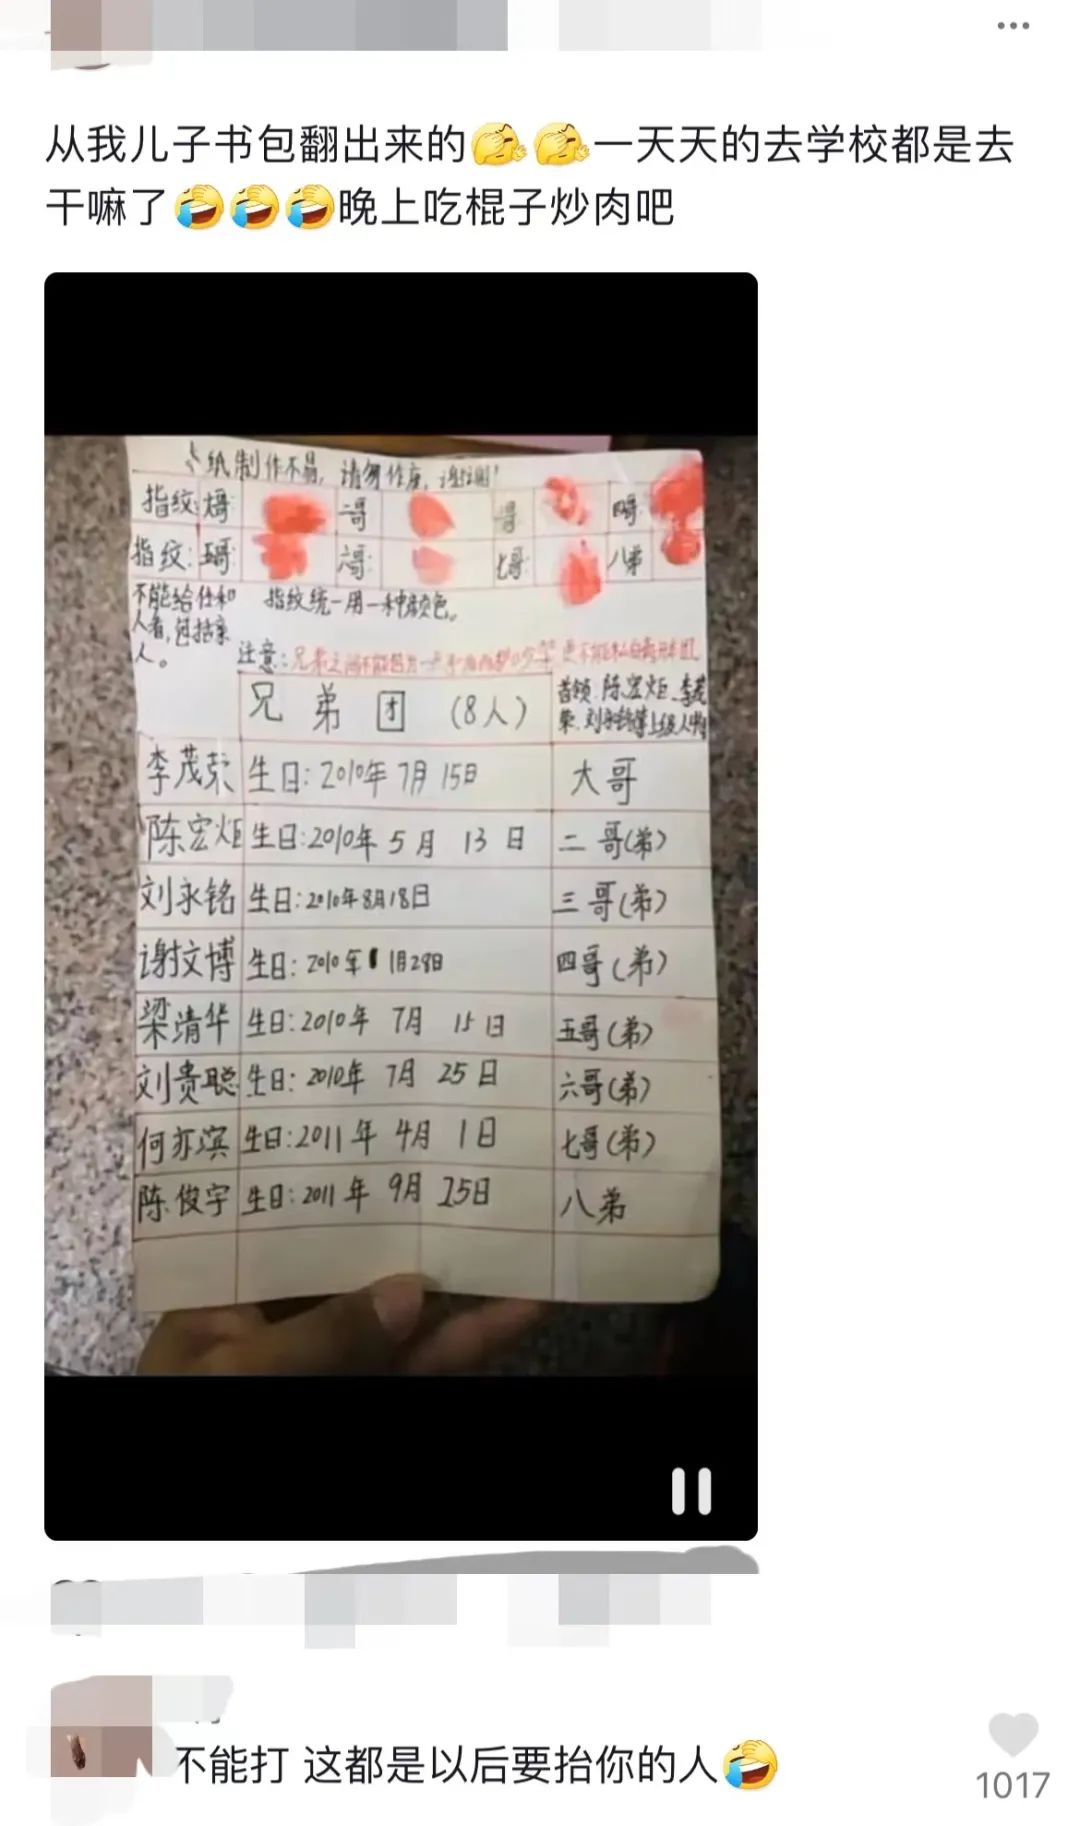 从我儿子书包翻出来的🫣🫣一天天的去学校都是去
干嘛了🤣🤣🤣晚上吃棍子炒肉吧
纸制作不易,请勿作废,谢谢!
指纹: 大哥: 二哥 三哥 四哥:
指纹: 五哥: 六哥: 七哥: 八弟
不能给任和
人看,包括亲
人。
指纹统一用一种颜色。
注意:兄弟之间不能因为一点
兄弟团 (8人)
首领:陈宏炬、李茂
荣、刘永铭等上级人
李茂荣 生日:2010年7月15日 大哥
陈宏炬 生日:2010年5月13日 二哥(弟)
刘永铭 生日:2010年8月18日 三哥(弟)
谢文博 生日:2010年 1月28日 四哥(弟)
梁清华 生日:2010年7月15日 五哥(弟)
刘贵聪 生日:2010年7月25日 六哥(弟)
何亦滨 生日:2011年4月1日 七哥(弟)
陈俊宇 生日:2011年9月15日 八弟
不能打 这都是以后要抬你的人🤣
1017